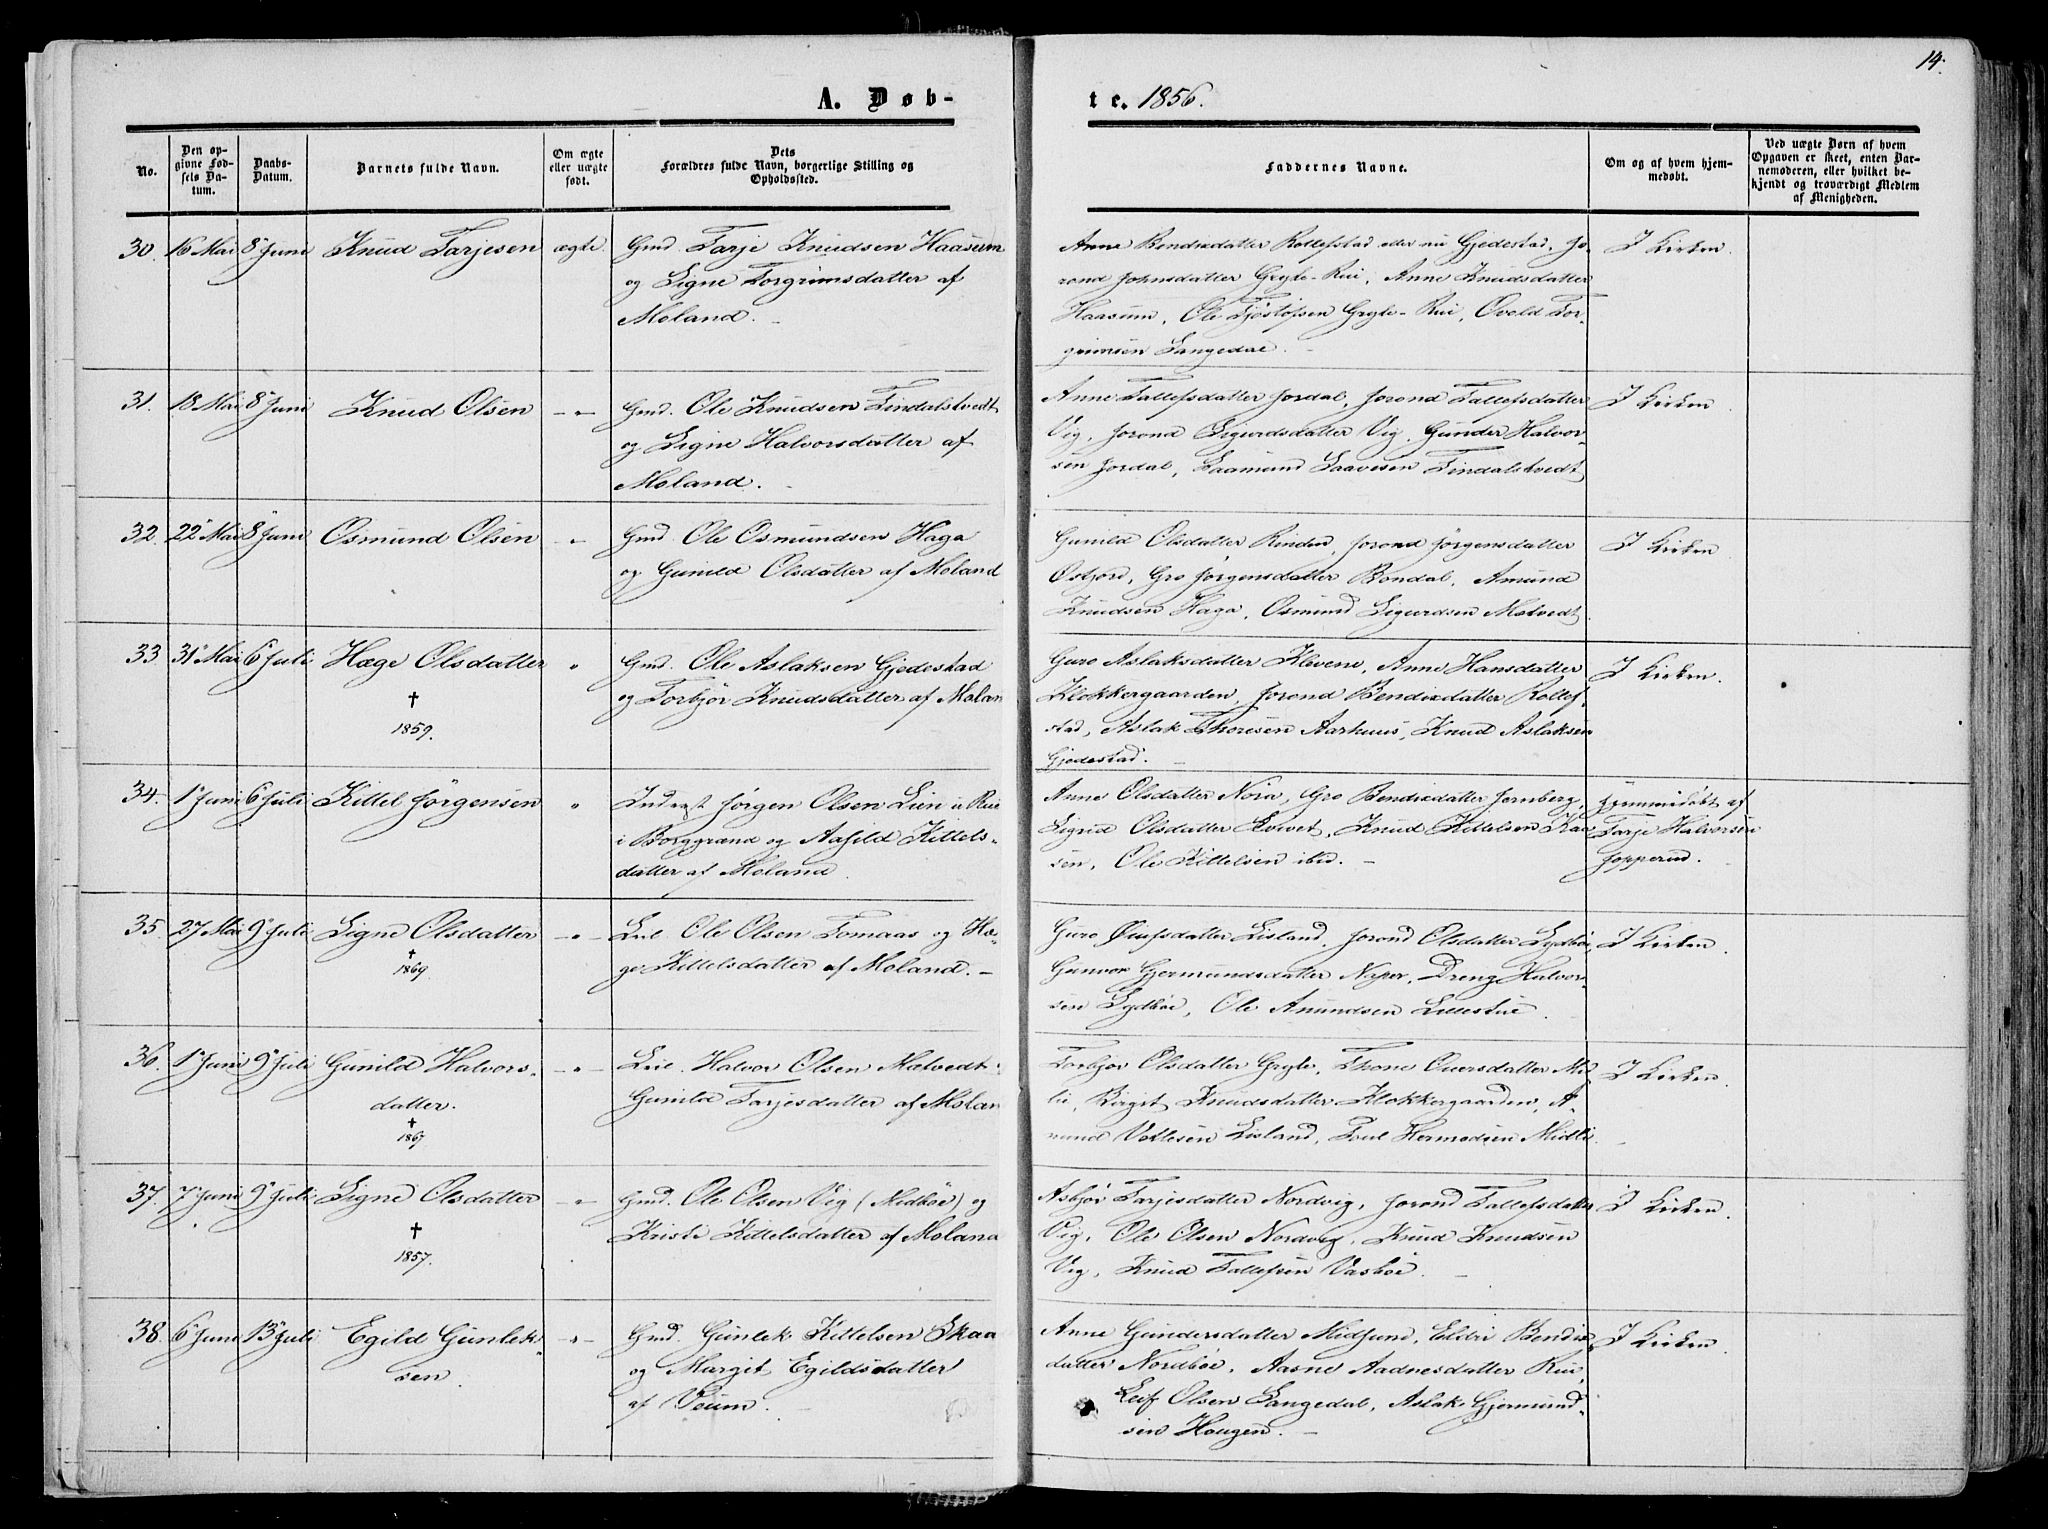 14.
A. Døb-
te. 1856.
No.
Den op-
givne Fød-
sels Da-
tum.
Daabs-
Datum.
Barnets fulde Navn.
Om ægte
eller uægte
født.
Dets
Forældres fulde Navn, borgerlige Stilling og
Opholdssted.
Faddernes Navne.
Om og af hvem hjem-
medøbt.
Ved uægte Børn af hvem
Opgaven er skeet, enten Bar-
nemoderen, eller hvilket be-
kjendt og troværdigt Medlem
af Menigheden.
30. 16 Mai 8 Juni Knud Tarjesen ægte. Gmd. Tarje Knudsen Haasum
og Signe Torgrimsdatter af
Moland.
Anne Bendixdatter Rollefstad eller nu Gjedestad, Jo-
rond Johnsdatter Grgte-Rui, Anne Knudsdatter
Haasum, Ole Tjøstofsen Grgte-Rui, Ovold Tor-
grimsen Langedal.
I Kirken.
31. 18 Mai 8 Juni Knud Olsen Gmd. Ole Knudsen Findalstvedt
og Signe Halvorsdatter af
Moland.
Anne Tallefsdatter Jordal, Jorond Tallefsdatter
Vig, Jorond Sigurdsdatter Vig, Gunder Halvor-
sen Jordal, Saamund Saavesen Findalstvedt
I Kirken
32. 22 Mai 8 Juni Osmund Olsen Gmd. Ole Osmundsen Haga
og Gunild Olsdatter af Moland
Gunild Olsdatter Rinden, Jorond Jørgensdatter
Osfjord, Gro Jørgensdatter Bondal, Amund
Knudsen Haga, Osmund Sigurdsen Motvedt
I Kirken
33 31 Mai 6 Juli Hæge Olsdatter Gmd. Ole Aslaksen Gjedestad
og Torbjør Knudsdatter af Molan
† 1859.
Guro Aslaksdatter Klevene, Anne Hansdatter
Klokkergaarden, Jorond Bendixdatter Rollef-
stad, Aslak Thoresen Aarhuus, Knud Aslaksen
Gjedestad.
I Kirken.
34. 1 Juni 6 Juli Kittel Jørgensen Inderst Jørgen Olsen Lien u Rui
i Borggrænd og Aasild Kittels-
datter af Moland.
Anne Olsdatter Nora, Gro Bendixdatter Jernberg,
Sigrid Olsdatter Kvivet, Knud Kittelsen Kaa
sen, Ole Kittelsen ibid.
Hjemmedøbt af
Tarje Halvorsen
Jopperud.
35. 27 Mai 9 Juli Signe Olsdatter Lil. Ole Olsen Tomaas og Hæ-
ge Kittelsdatter af Moland.
† 1869.
Guro Ølufsdatter Lisland, Jorond Olsdatter Sydbøe,
Gunvor Gjermundsdatter Naper, Dreng Halvor-
sen Sydbøe, Ole Amundsen Lillestue.
I Kirken.
36. 1 Juni 9 Juli Gunild Halvors-
datter.
† 1867
Lil. Halvor Olsen Malvedt
Gunild Tarjesdatter af Molan
Torbjør Olsdatter Grgte, Thone Onersdatter Mid
lie, Birgit Knudsdatter Klokkergaarden, A-
mund Vetlesen Lisland, Poul Hermodsen Midtli
I Kirken.
37. 7 Juni 9 Juli Signe Olsdatter Gmd. Ole Olsen Vig (Midbøe) og
Kristi Kittelsdatter af Moland
† 1857.
Asbjør Tarjesdatter Nordvig, Jorond Tallefsdatter
Vig, Ole Olsen Nordvig, Knud Knudsen
Vig, Knud Tallefsen Vasbøe.
I Kirken.
38. 6 Juni 13 Juli Egild Gunlek-
sen.
Gmd. Gunlek Kittelsen Skaa
og Margit Egildsdatter
af Veum.
Anne Gundersdatter Midjund, Eldri Bendix
datter Nordbøe, Aasne Aadnesdatter Rui,
Leif Olsen Langedal, Aslak Gjermund-
sen Haugen.
I Kirken.